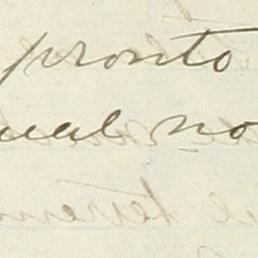 pronto
ual no